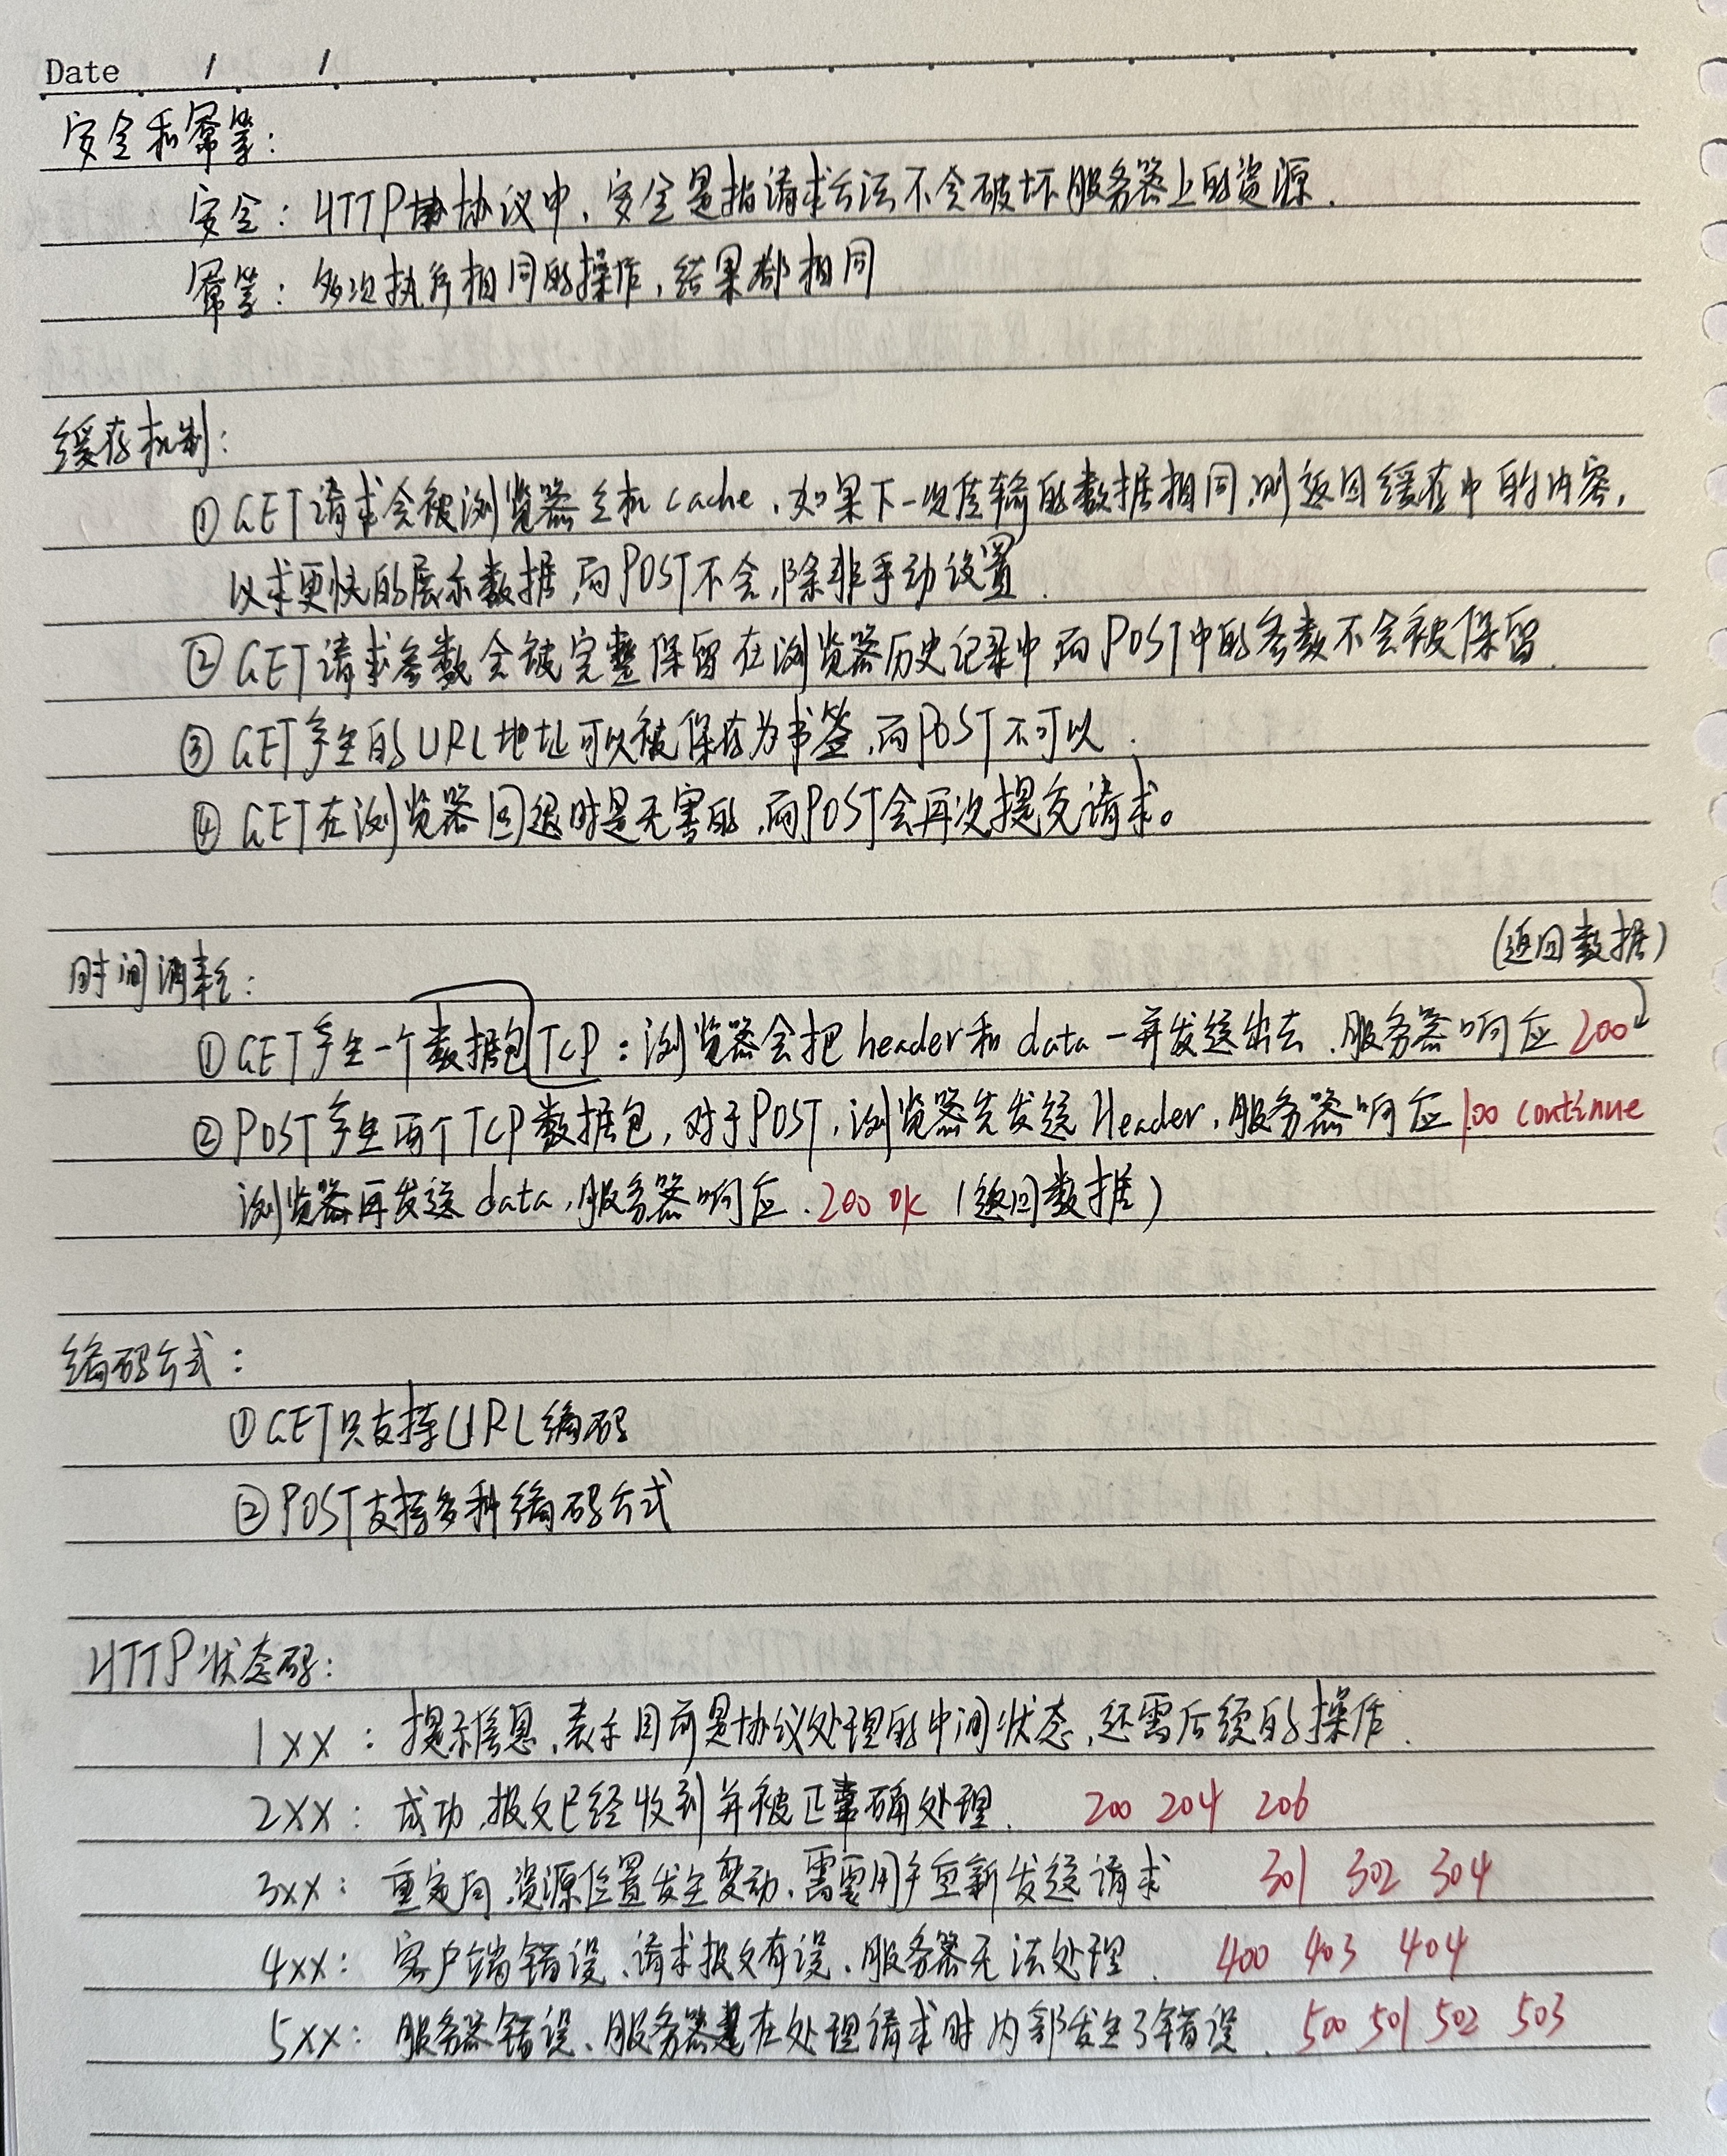 Date / /
安全和幂等:
安全: HTTP协议中,安全是指请求方法不会破坏服务器上的资源.
幂等: 多次执行相同的操作,结果都相同
缓存机制:
① GET请求会被浏览器主动cache,如果下一次传输的数据相同,则返回缓存中的内容,
以求更快的展示数据,而POST不会,除非手动设置.
② GET请求参数会被完整保留在浏览器历史记录中,而POST中的参数不会被保留.
③ GET产生的URL地址可以被保存为书签,而POST不可以.
④ GET在浏览器回退时是无害的,而POST会再次提交请求。
(返回数据)
时间消耗:
① GET产生一个数据包TCP: 浏览器会把header和data一并发送出去,服务器响应200
② POST产生两个TCP数据包,对于POST,浏览器先发送Header,服务器响应100 continue
浏览器再发送data,服务器响应.200 ok (返回数据)
编码方式:
① GET只支持URL编码
② POST支持多种编码方式
HTTP状态码:
1xx: 提示信息,表示目前是协议处理的中间状态,还需后续的操作.
2xx: 成功,报文已经收到并被正确处理. 200 204 206
3xx: 重定向,资源位置发生变动,需要用户重新发送请求 301 302 304
4xx: 客户端错误,请求报文有误,服务器无法处理. 400 403 404
5xx: 服务器错误,服务器在处理请求时内部发生了错误. 500 501 502 503